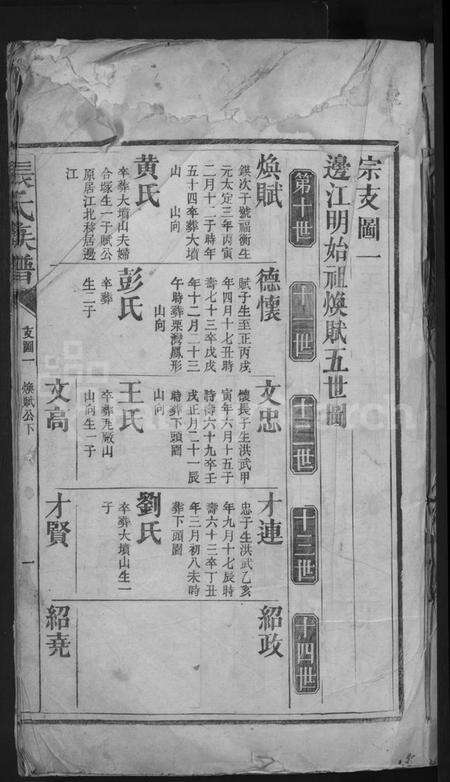 宗支圖一
邊江明始祖煥賦五世圖
第十世
十一世
十二世
十三世
十四世
煥賦
鎂次子號福衡生
元太定三年丙寅
二月十二子時年
五十四卒葬大墳
山 山向
黄氏
卒葬大墳山夫婦
合塚生一子賦公
原居江北移居邊
江
德懷
賦子生至正丙戌
年四月十七丑時
壽七十三卒戊戌
年十二月二十三
午時葬栗灣鳳形
山向
彭氏
卒葬
生二子
文忠
懷長子生洪武甲
寅年六月十五子
時壽六十九卒壬
戌正月二十一辰
時葬下頭園
山向
王氏
卒葬瓦廠山
山向生一子
文高
才連
忠子生洪武乙亥
年九月十七辰時
壽六十三卒丁丑
年三月初八未時
葬下頭園
劉氏
卒葬大墳山生一
子
才賢
紹政
紹堯
氏族譜
支圖一
煥賦公下
一